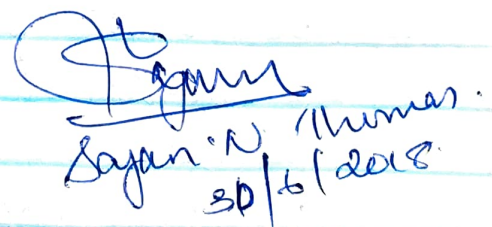 Sajan
Sajan. N. Thomas.
30/6/2018